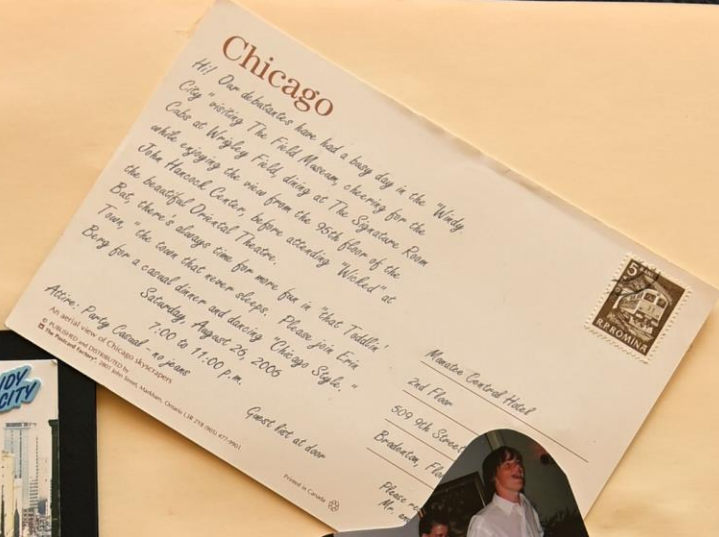 Chicago
Hi! Our debutantes have had a busy day in the "Windy
City" visiting The Field Museum, cheering for the
Cubs at Wrigley Field, dining at The Signature Room
while enjoying the view from the 95th floor of the
John Hancock Center, before attending "Wicked" at
the beautiful Oriental Theatre.
But, there's always time for more fun in "that Toddlin'
Town," the town that never sleeps. Please join Erin
Berg for a casual dinner and dancing "Chicago Style."
Saturday, August 26, 2006
7:00 to 11:00 p.m.
Attire: Party Casual - no jeans
Guest list at door
An aerial view of Chicago skyscrapers
PUBLISHED and DISTRIBUTED by
The Postcard Factory, 2801 John Street, Markham, Ontario L3R 2Y8 (905) 477-9901
Printed in Canada
5
R.P.ROMINA
Manatee Central Hotel
2nd Floor
509 9th Street
Bradenton,
Please
Mr.
CITY